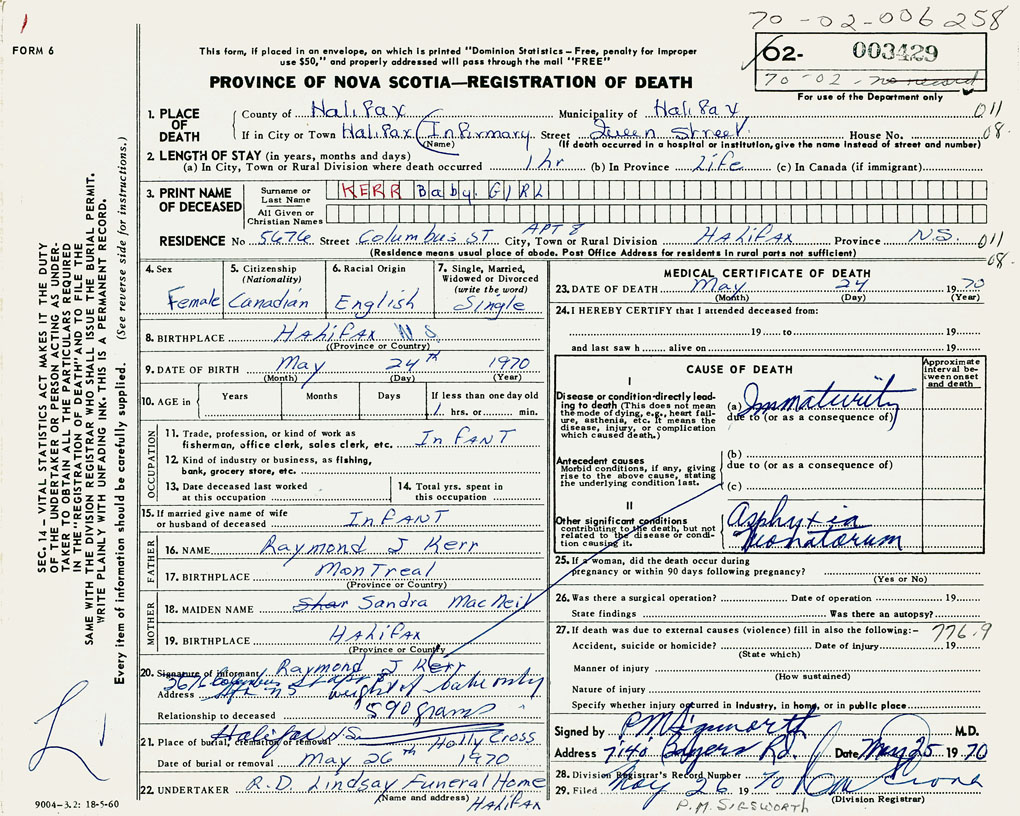 1
70-02-006258
FORM 6
This form, if placed in an envelope, on which is printed "Dominion Statistics – Free, penalty for improper
use $50," and properly addressed will pass through the mail "FREE"
02- 003429
70-02- no record
For use of the Department only
PROVINCE OF NOVA SCOTIA—REGISTRATION OF DEATH
1. PLACE OF DEATH County of Halifax Municipality of Halifax 011
If in City or Town Halifax (Infirmary Street Queen Street House No. 08.
(Name) (If death occurred in a hospital or institution, give the name instead of street and number)
2. LENGTH OF STAY (in years, months and days)
(a) In City, Town or Rural Division where death occurred 1 hr (b) In Province Life (c) In Canada (if immigrant)
3. PRINT NAME OF DECEASED Surname or Last Name KERR Baby. GIRL
All Given or Christian Names
APT 8
RESIDENCE No 5676 Street Columbus ST City, Town or Rural Division HALIFAX Province N.S. 011
(Residence means usual place of abode. Post Office Address for residents in rural parts not sufficient) 08.
4. Sex Female
5. Citizenship (Nationality) Canadian
6. Racial Origin English
7. Single, Married, Widowed or Divorced (write the word) Single
8. BIRTHPLACE HALIFAX N.S.
(Province or Country)
9. DATE OF BIRTH May 24th 1970
(Month) (Day) (Year)
10. AGE in Years Months Days If less than one day old
1 hrs. or min.
OCCUPATION
11. Trade, profession, or kind of work as
fisherman, office clerk, sales clerk, etc. InFANT
12. Kind of industry or business, as fishing,
bank, grocery store, etc.
13. Date deceased last worked
at this occupation
14. Total yrs. spent in
this occupation
15. If married give name of wife
or husband of deceased InFANT
FATHER
16. NAME Raymond J Kerr
17. BIRTHPLACE MonTreal
(Province or Country)
MOTHER
18. MAIDEN NAME Shar Sandra MacNeil
19. BIRTHPLACE HALIFAX
(Province or Country)
20. Signature of informant Raymond J Kerr
Address 5676 Columbus St Apt 8
Hfx NS weight of babe only
Relationship to deceased 590 grams
21. Place of burial, cremation or removal Halifax N.S. Holly Cross
Date of burial or removal May 26th 1970
22. UNDERTAKER R.D. Lindsay Funeral Home
(Name and address) HALIFAX
MEDICAL CERTIFICATE OF DEATH
23. DATE OF DEATH May 24 1970
(Month) (Day) (Year)
24. I HEREBY CERTIFY that I attended deceased from:
19 to 19
and last saw h alive on 19
CAUSE OF DEATH
Approximate interval between onset and death
I
Disease or condition directly leading to death (This does not mean the mode of dying, e.g., heart failure, asthenia, etc. It means the disease, injury, or complication which caused death.)
(a) Immaturity
due to (or as a consequence of)
Antecedent causes
Morbid conditions, if any, giving rise to the above cause, stating the underlying condition last.
(b)
due to (or as a consequence of)
(c)
II
Other significant conditions contributing to the death, but not related to the disease or condition causing it.
Asphyxia
Neonatorum
25. If a woman, did the death occur during
pregnancy or within 90 days following pregnancy?
(Yes or No)
26. Was there a surgical operation? Date of operation 19
State findings Was there an autopsy?
27. If death was due to external causes (violence) fill in also the following:– 776.9
Accident, suicide or homicide? Date of injury 19
(State which)
Manner of injury
(How sustained)
Nature of injury
Specify whether injury occurred in industry, in home, or in public place
Signed by P M Sigsworth M.D.
Address 7140 Bayers Rd. Date May 25 1970
28. Division Registrar's Record Number
29. Filed May 26 1970
(Division Registrar)
P.M. SIGSWORTH
SEC. 14 – VITAL STATISTICS ACT MAKES IT THE DUTY
OF THE UNDERTAKER OR PERSON ACTING AS UNDER-
TAKER TO OBTAIN ALL THE PARTICULARS REQUIRED
IN THE "REGISTRATION OF DEATH" AND TO FILE THE
SAME WITH THE DIVISION REGISTRAR WHO SHALL ISSUE THE BURIAL PERMIT.
WRITE PLAINLY WITH UNFADING INK. THIS IS A PERMANENT RECORD.
Every item of information should be carefully supplied. (See reverse side for instructions.)
9004–3.2: 18-5-60